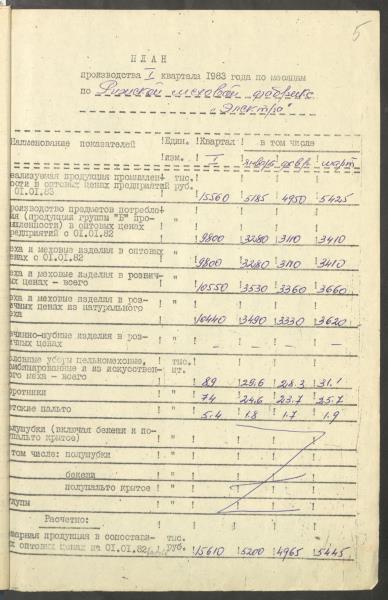 5
ПЛАН
производства I квартала 1983 года по месяцам
по Рижской меховой фабрике
"Электра"
Наименование показателей Един. изм. Квартал I в том числе январь февр. март
еализуемая продукция промышлен-
ности в оптовых ценах предприятий
01.01.83 тыс. руб. 15560 5185 4950 5425
роизводство предметов потребле-
ия (продукция группы "Б" про-
ышленности) в оптовых ценах
редприятий с 01.01.82 " 9800 3280 3110 3410
еха и меховые изделия в оптовых
ценах с 01.01.82 " 9800 3280 3110 3410
еха и меховые изделия в рознич-
ых ценах - всего " 10550 3530 3360 3660
еха и меховые изделия в роз-
ичных ценах из натурального
еха " 10440 3490 3330 3620
вчинно-шубные изделия в роз-
ичных ценах " - - - -
оловные уборы цельномеховые,
омбинированные и из искусствен-
ого меха - всего тыс. шт. 89 29.6 28.3 31.1
оротники " 74 24.6 23.7 25.7
етские пальто " 5.4 1.8 1.7 1.9
олушубки (включая бекеши и по-
упальто крытое) "
том числе: полушубки "
бекеши "
полупальто крытое "
улупы "
Расчетно:
оварная продукция в сопостави-
ых оптовых ценах на 01.01.82 тыс. руб. 15610 5200 4965 5445